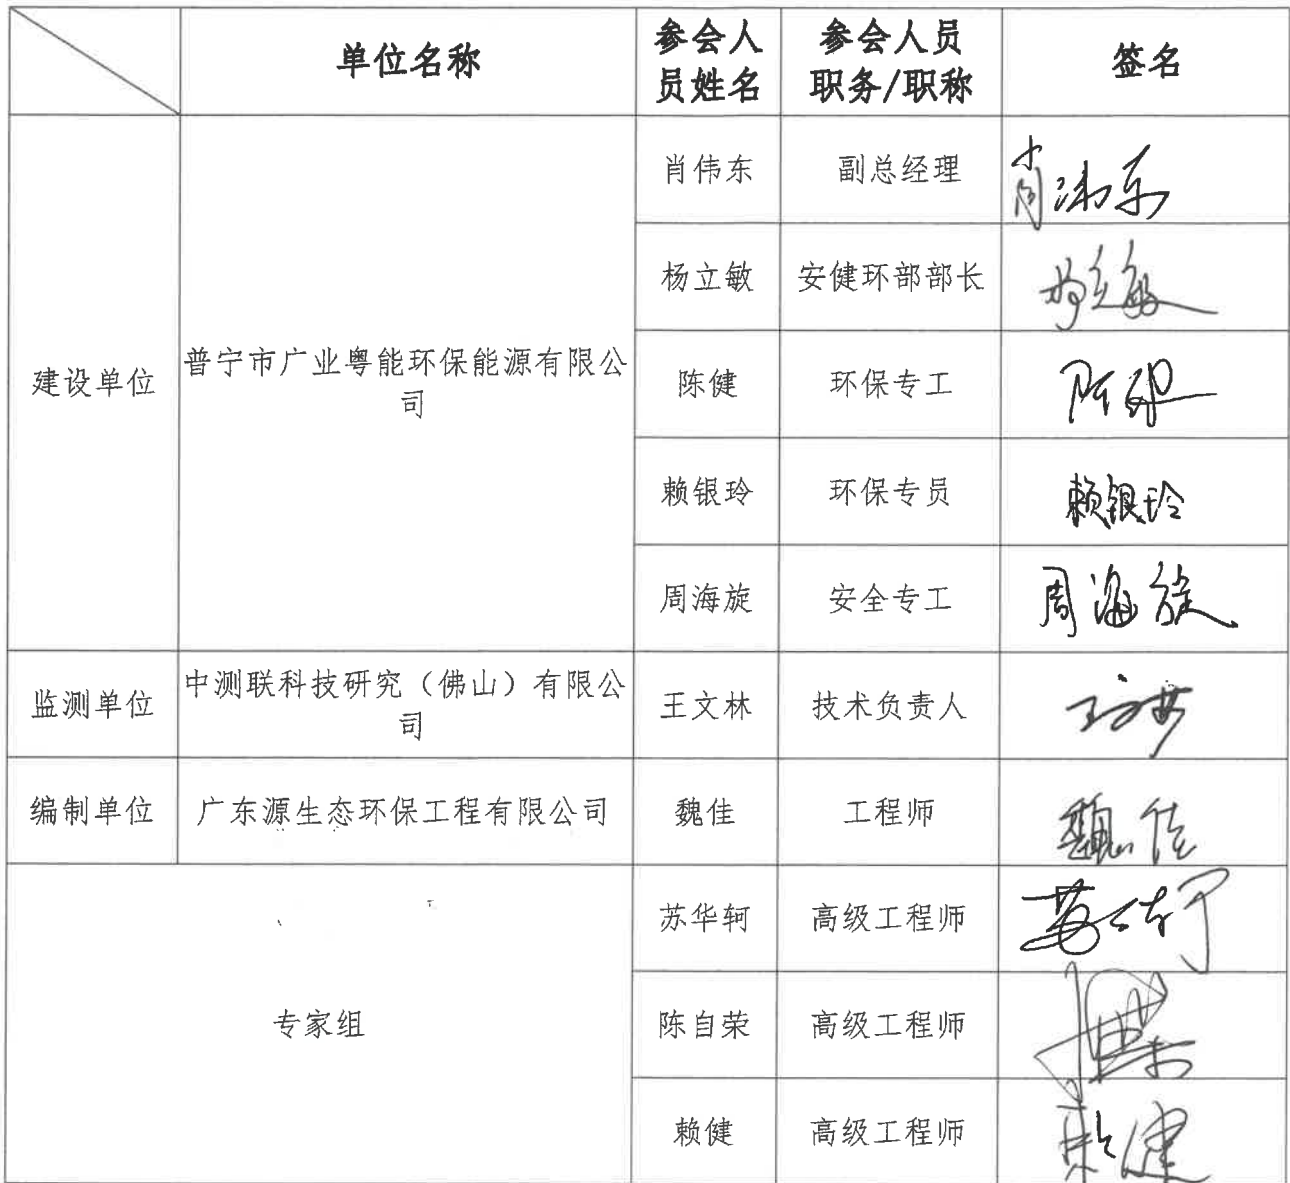 单位名称
参会人
员姓名
参会人员
职务/职称
签名
建设单位
普宁市广业粤能环保能源有限公
司
肖伟东
副总经理
肖沛东
杨立敏
安健环部部长
杨立敏
陈健
环保专工
陈健
赖银玲
环保专员
赖银玲
周海旋
安全专工
周海旋
监测单位
中测联科技研究（佛山）有限公
司
王文林
技术负责人
编制单位
广东源生态环保工程有限公司
魏佳
工程师
魏佳
专家组
苏华轲
高级工程师
陈自荣
高级工程师
赖健
高级工程师
赖健